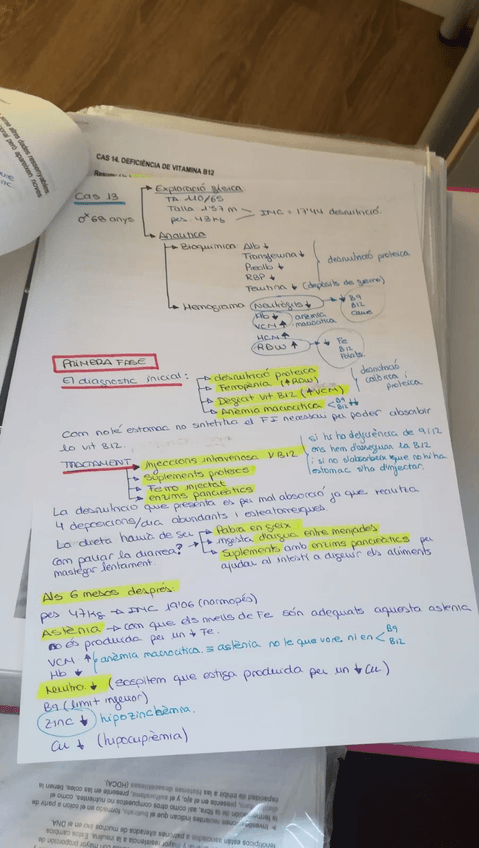 CAS 14. DEFICIÈNCIA DE VITAMINA B12
Cas 13
♂ 68 anys
Exploració física
TA 110/65
Talla 1'57 m
pes 43 kg
IMC = 17'44 desnutrició
Analítica
Bioquímica
Alb ↓
Transferrina ↓
Prealb ↓
RBP ↓
Ferritina ↓ (dipòsits de ferro)
desnutrició proteica
Hemograma
Neutròfils ↓
↓ B9
B12
Coure
Hb ↓
VCM ↑
anèmia macrocítica
HCM ↑
RDW ↑
↓ Fe
B12
Folats
PRIMERA FASE
El diagnòstic inicial:
desnutrició proteica
Ferropènia (↑RDW)
Dèficit vit B12 (↑VCM)
Anèmia macrocítica < B9 B12 ↓↓
desnutrició calòrica i proteica
Com no té estómac no sintetitza el FI necessari per poder absorbir
la vit B12.
TRACTAMENT
Injeccions intravenosa V B12
Suplements proteics
Ferro injectat
enzims pancreàtics
si hi ha deficiència de 9 i 12
ens hem d'assegurar la B12
i si no s'absorbeix que no hi ha
estómac s'ha d'injectar.
La desnutrició que presenta és per mal absorció ja que realitza
4 deposicions/dia abundants i esteatorreiques.
La dieta hauria de ser
Com pal·liar la diarrea?
mastegar lentament.
Pobra en greix
ingesta d'aigua entre menjades
Suplements amb enzims pancreàtics per
ajudar al intestí a digerir els aliments
Als 6 mesos després
pes 47kg → IMC 19'06 (normopès)
Astènia → com que els nivells de Fe són adequats aquesta astènia
no és produida per un ↓ Fe.
VCM ↑
Hb ↓
anèmia macrocítica = astènia no te que vore ni en < B9 B12
Neutro. ↓ (sospitem que estiga produida per un ↓ Cu)
B9 (límit inferior)
Zinc ↓ hipozinchèmia.
Cu ↓ (hipocuprèmia)